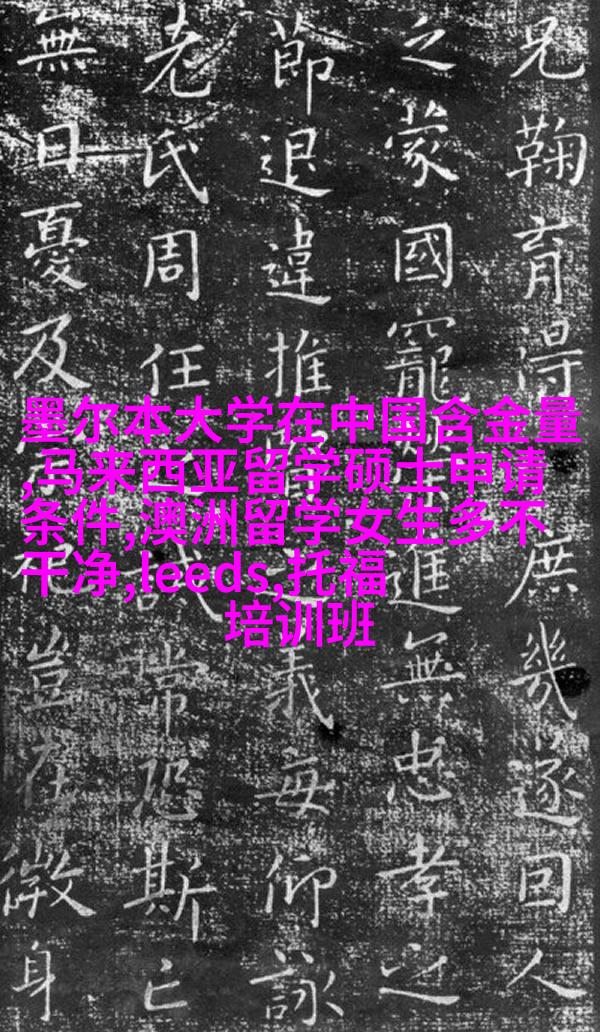 兄鞠育得庶幾遂回人
之蒙國寵進無忠孝之
節退違推之義每仰詠
老氏周任誡常恐斯亡
無日憂及祀豈在微身
墨尔本大学在中国含金量
,马来西亚留学硕士申请
条件,澳洲留学女生多不
干净,leeds,托福
培训班